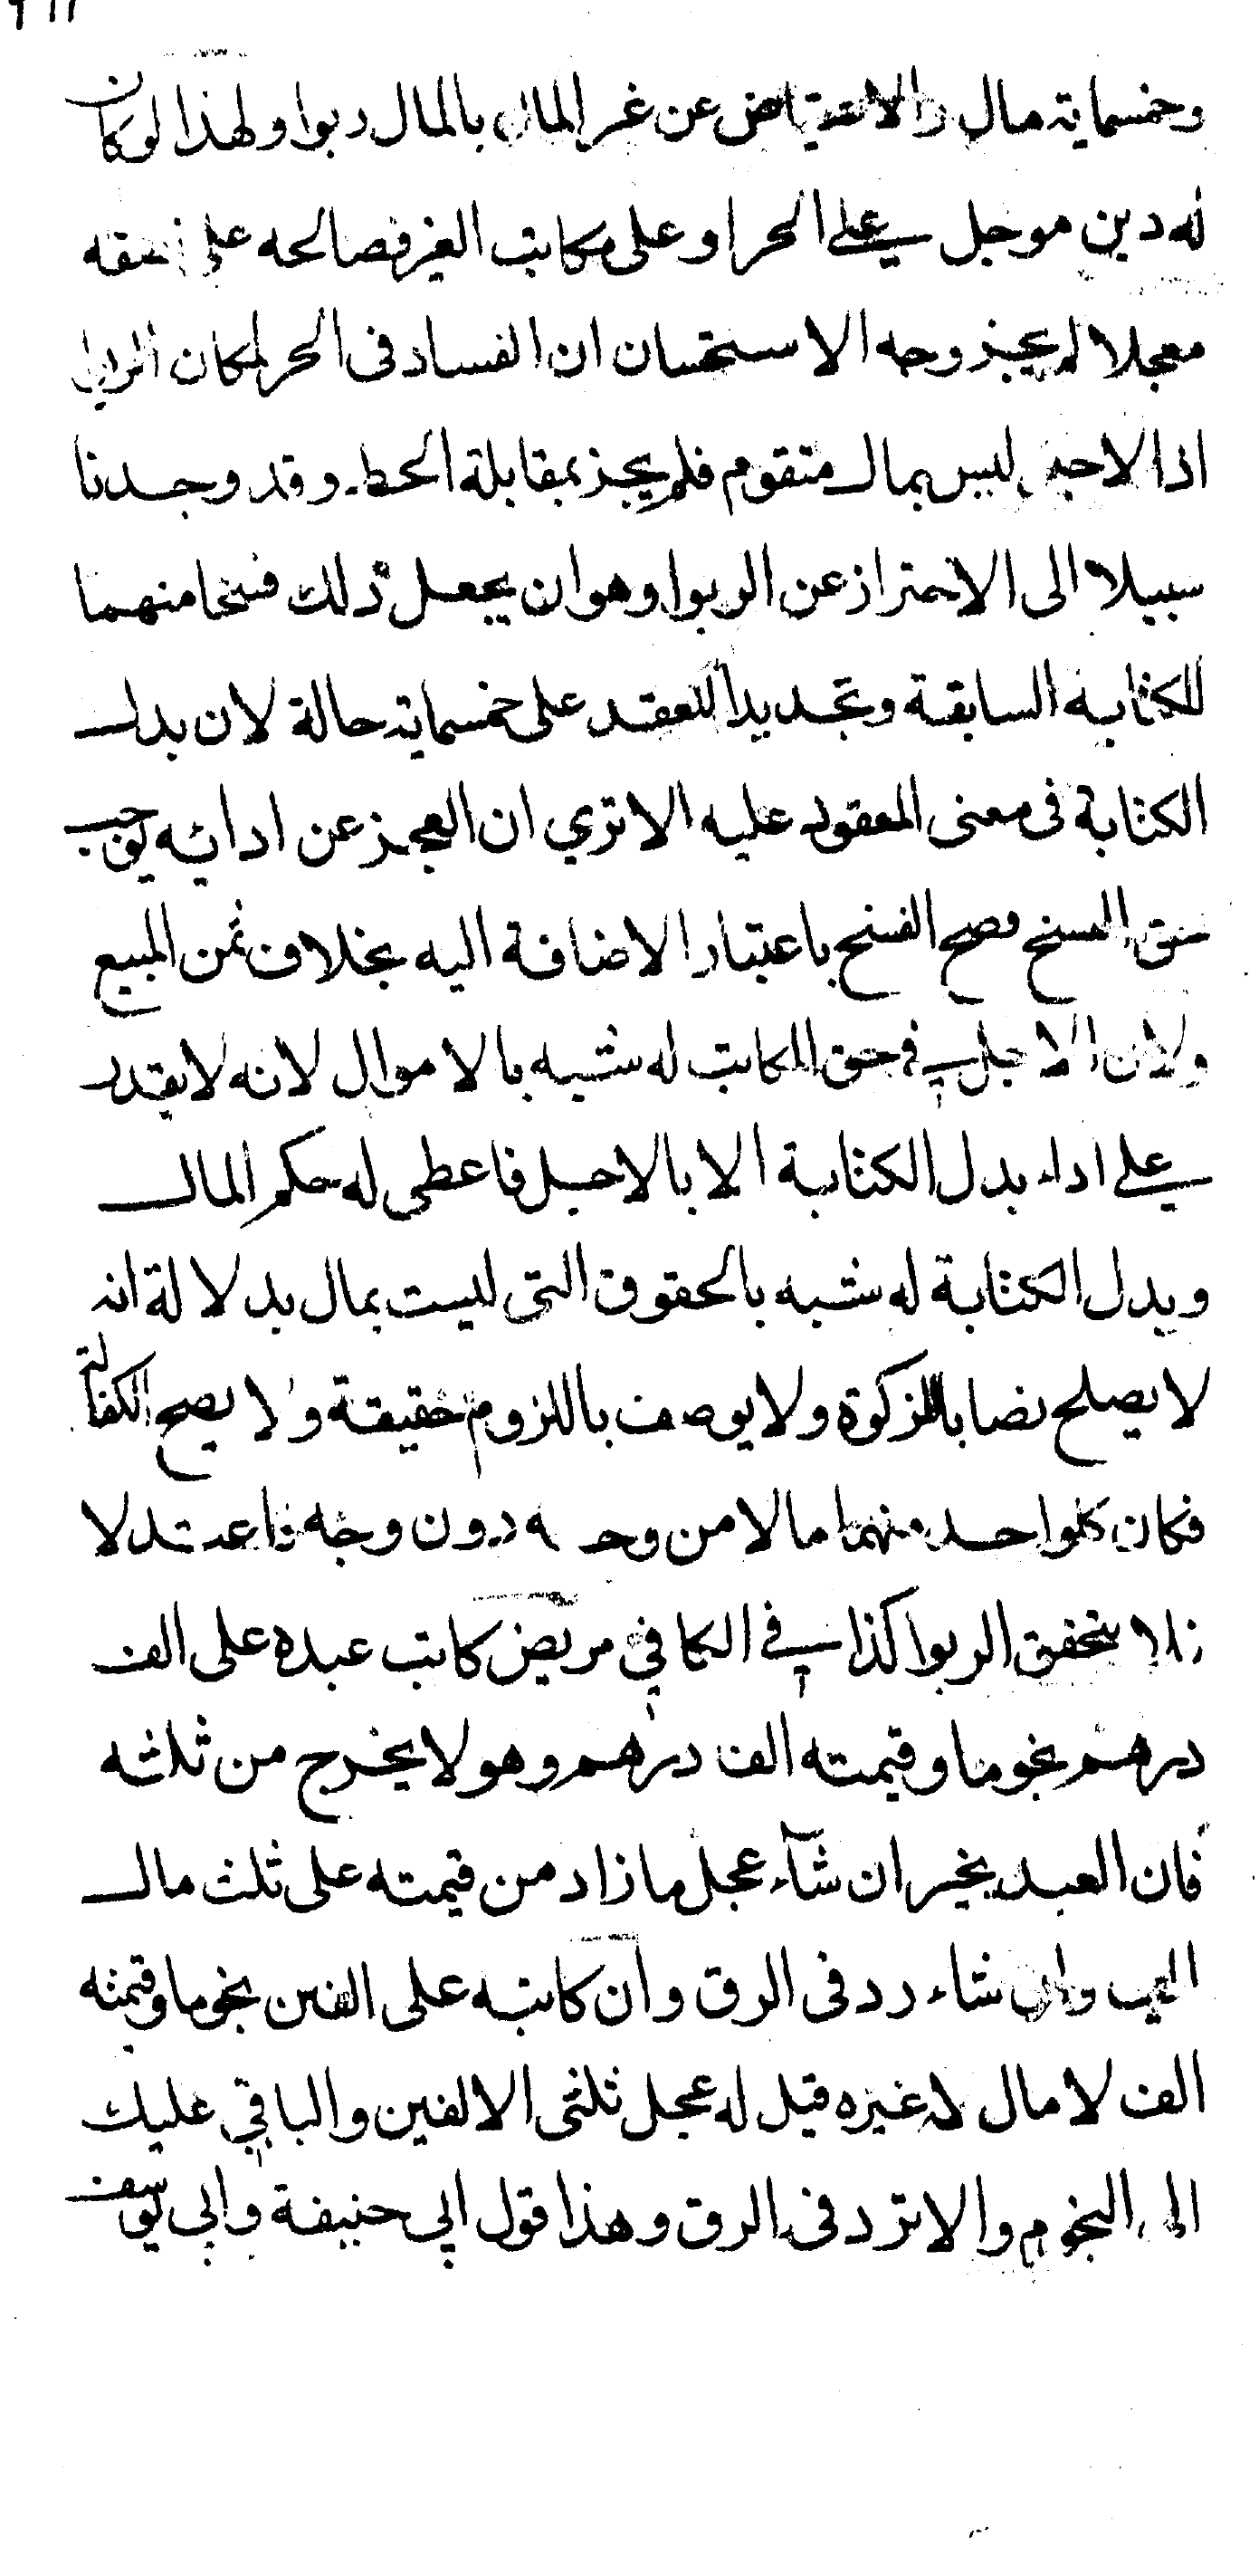 وخمسماية مال والاعتياض عن غير المال بالمال ربوا ولهذا لوكان
له دين موجل علي الحر او على مكاتب الغير فصالحه على نصفه
معجلا لم يجز وجه الاستحسان ان الفساد فى الحر لمكان الربوا
اذا الاجل ليس بمال متقوم فلم يجز بمقابلة الحط وقد وجدنا
سبيلا الى الاحتراز عن الربوا وهو ان يجعل ذلك فسخا منهما
للكتابة السابقة وتجديدا للعقد على خمسماية حالة لان بدل
الكتابة فى معنى المعقود عليه الا تري ان العجز عن ادائه يوجب
حق الفسخ فصح الفسخ باعتبار الاضافة اليه بخلاف ثمن المبيع
ولان الاجل في حق المكاتب له شبه بالاموال لانه لا يقدر
علي اداء بدل الكتابة الا بالاجل فاعطى له حكم المال
وبدل الكتابة له شبه بالحقوق التى ليست بمال بدلالة انه
لا يصلح نصابا للزكوة ولا يوصف باللزوم حقيقة ولا يصح الكفالة
فكان كلواحد منهما مالا من وجه دون وجه فاعتدلا
فلا يتحقق الربوا كذا في الكافي مريض كاتب عبده على الف
درهم نجوما وقيمته الف درهم وهو لا يخرج من ثلثه
فان العبد يخير ان شآء عجل ما زاد من قيمته على ثلث مال
الميت وان شاء رد فى الرق وان كاتبه على الفين نجوما وقيمته
الف لا مال له غيره قيل له عجل ثلثى الالفين والباقي عليك
الى النجوم والا ترد فى الرق وهذا قول ابي حنيفة وابي يوسف